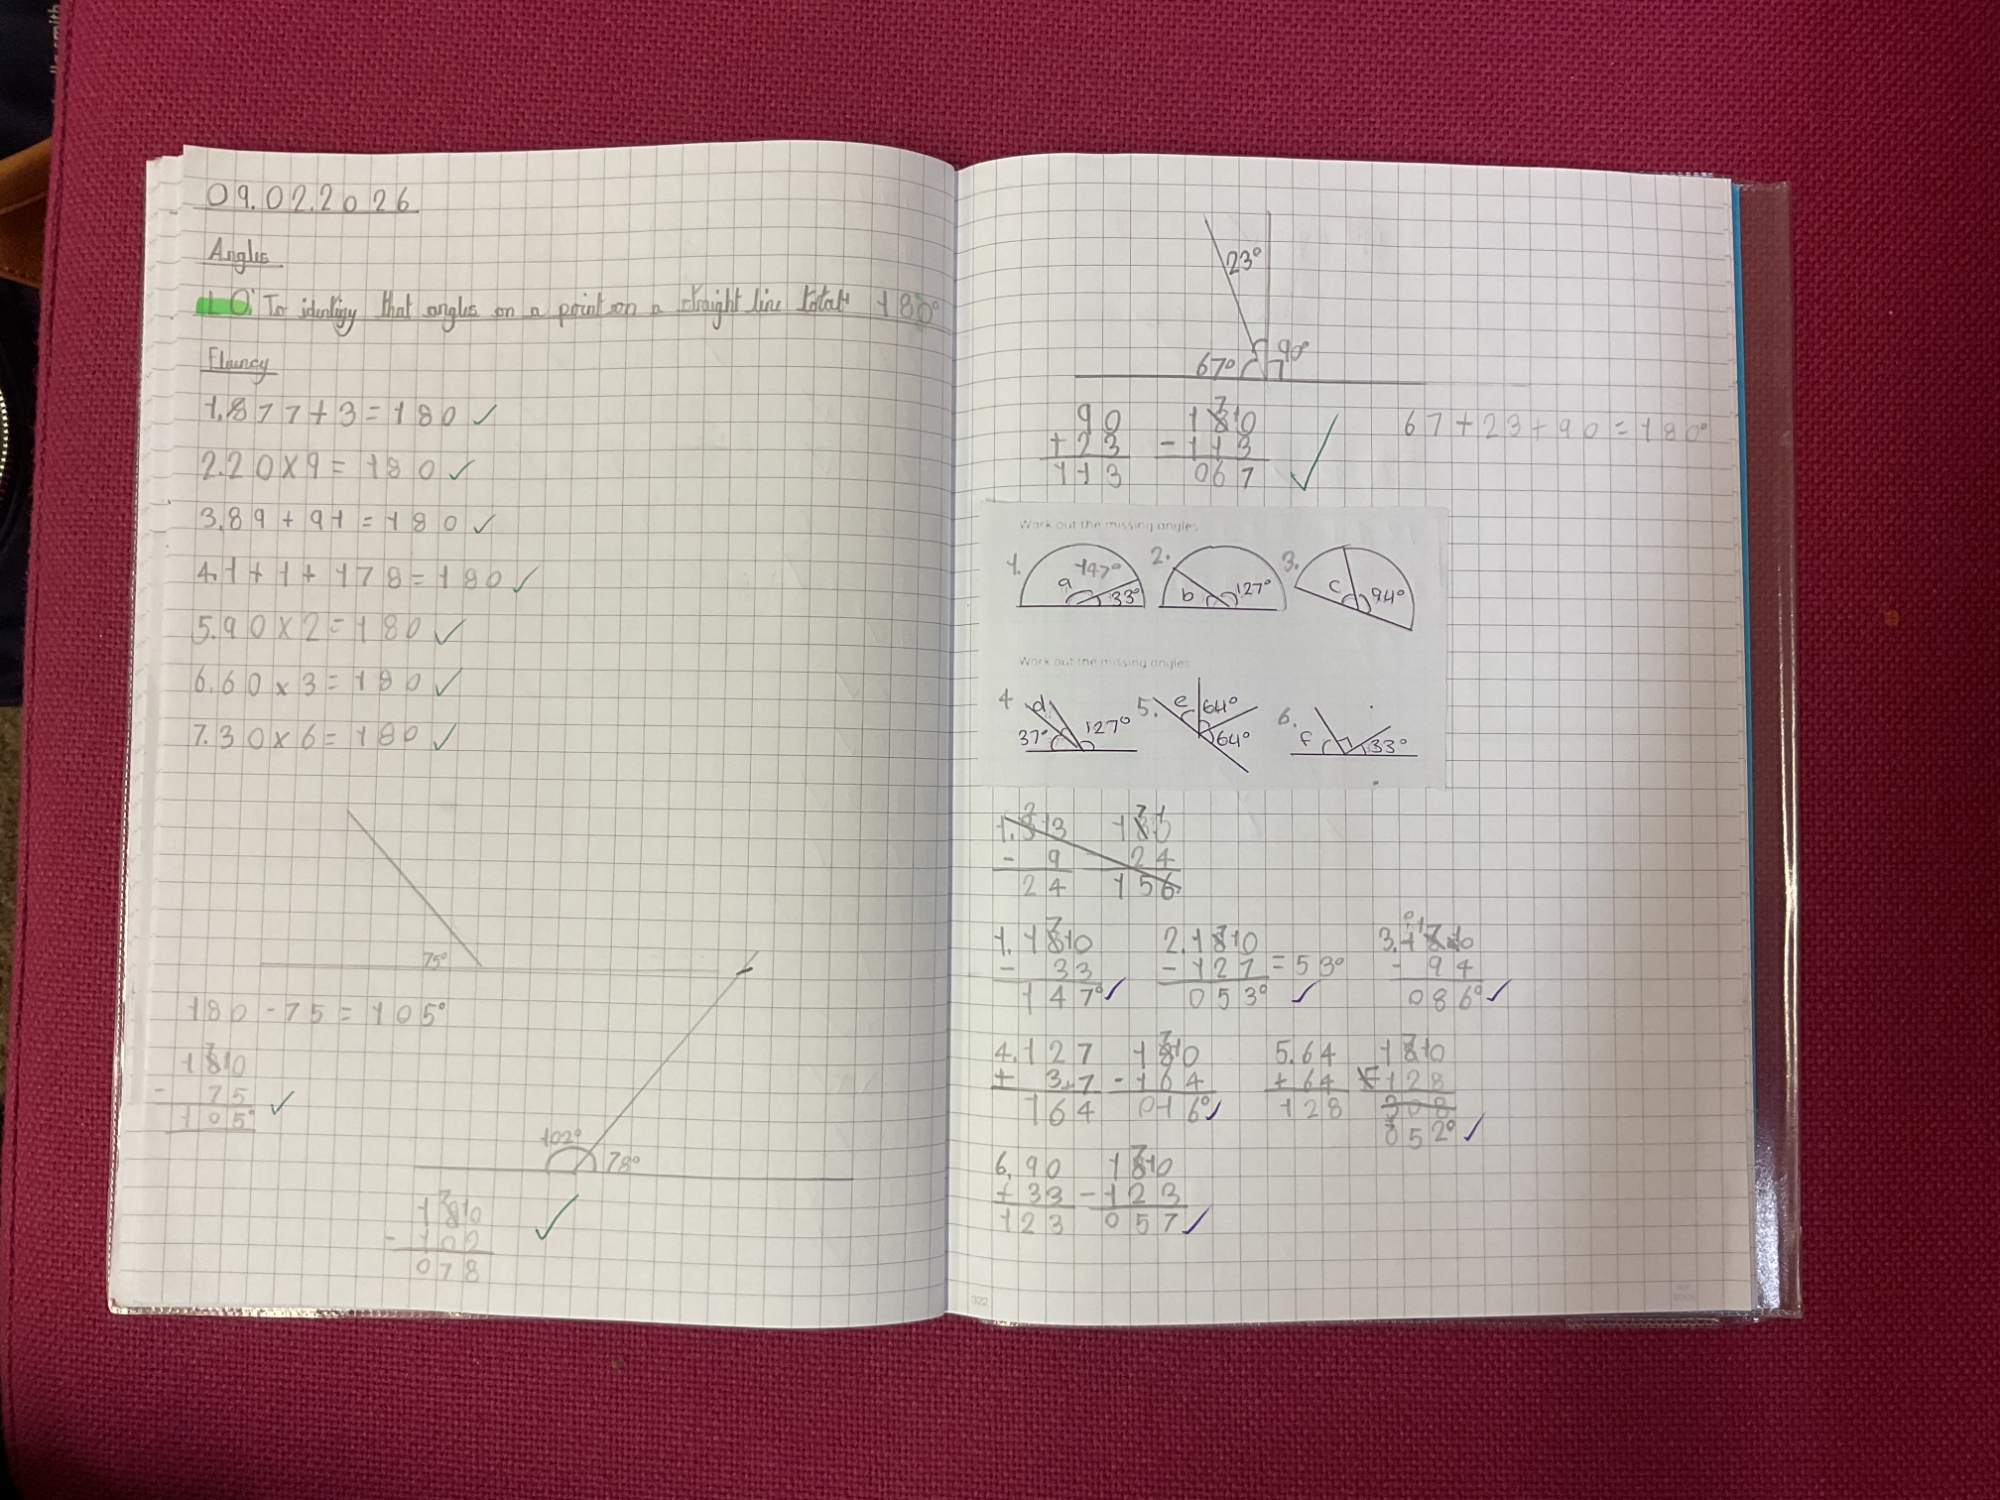 09.02.2026
Angles
L.O: To identify that angles on a point on a straight line totals 180°
Fluency
1. 177 + 3 = 180 ✓
2. 20 x 9 = 180 ✓
3. 89 + 91 = 180 ✓
4. 1 + 1 + 178 = 180 ✓
5. 90 x 2 = 180 ✓
6. 60 x 3 = 180 ✓
7. 30 x 6 = 180 ✓
75°
180 - 75 = 105°
180
- 75
105° ✓
102° 78°
180
- 102
078 ✓
23°
67° 90°
90 180
+ 23 - 113
113 067 ✓
67 + 23 + 90 = 180°
Work out the missing angles
1. a 147° 33° 2. b 127° 3. c 94°
Work out the missing angles
4 d 37° 127° 5. e 64° 64° 6. f 33°
1. 33 180
- 9 24
24 156
1. 180 2. 180 3. 180
- 33 - 127 = 53° - 94
147° ✓ 053° ✓ 086° ✓
4. 127 180 5. 64 180
+ 37 - 164 + 64 - 128
164 016° ✓ 128 308
052° ✓
6. 90 180
+ 33 - 123
123 057 ✓
322